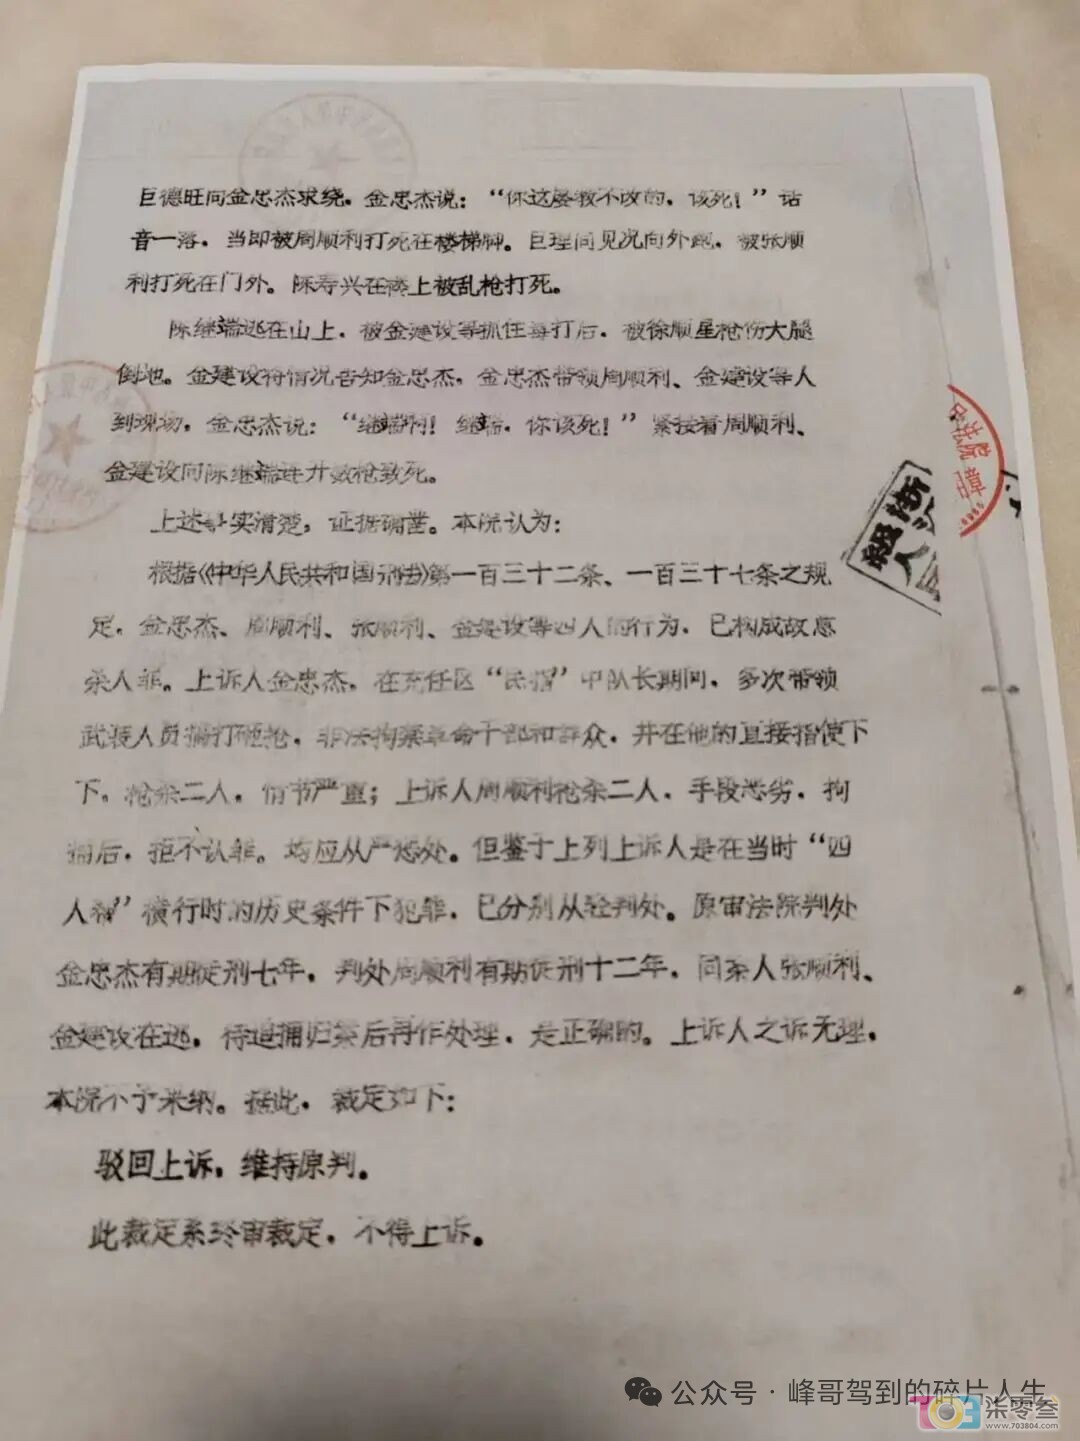 巨德旺向金忠杰求绕，金忠杰说：“你这屡教不改的，该死！”话
音一落，当即被周顺利打死在楼梯脚。巨理间见况向外跑，被张顺
利打死在门外。陈寿兴在楼上被乱枪打死。
陈继端逃在山上，被金建设等抓住毒打后，被徐顺星枪伤大腿
倒地。金建设将情况告知金忠杰，金忠杰带领周顺利、金建设等人
到现场，金忠杰说：“继端啊！继端，你该死！”紧接着周顺利、
金建设向陈继端连开数枪致死。
上述事实清楚，证据确凿。本院认为：
根据《中华人民共和国刑法》第一百三十二条、一百三十七条之规
定，金忠杰、周顺利、张顺利、金建设等四人的行为，已构成故意
杀人罪。上诉人金忠杰，在充任区“民指”中队长期间，多次带领
武装人员搞打砸抢，非法拘禁革命干部和群众，并在他的直接指使下
下，枪杀二人，情节严重；上诉人周顺利枪杀二人，手段恶劣，拘
捕后，拒不认罪。均应从严惩处。但鉴于上列上诉人是在当时“四
人帮”横行时的历史条件下犯罪，已分别从轻判处。原审法院判处
金忠杰有期徒刑七年，判处周顺利有期徒刑十二年，同案人张顺利、
金建设在逃，待追捕归案后再作处理，是正确的。上诉人之诉无理，
本院不予采纳。据此，裁定如下：
驳回上诉，维持原判。
此裁定系终审裁定，不得上诉。
公众号·峰哥驾到的碎片人生
703 柒零叁
www.703804.com